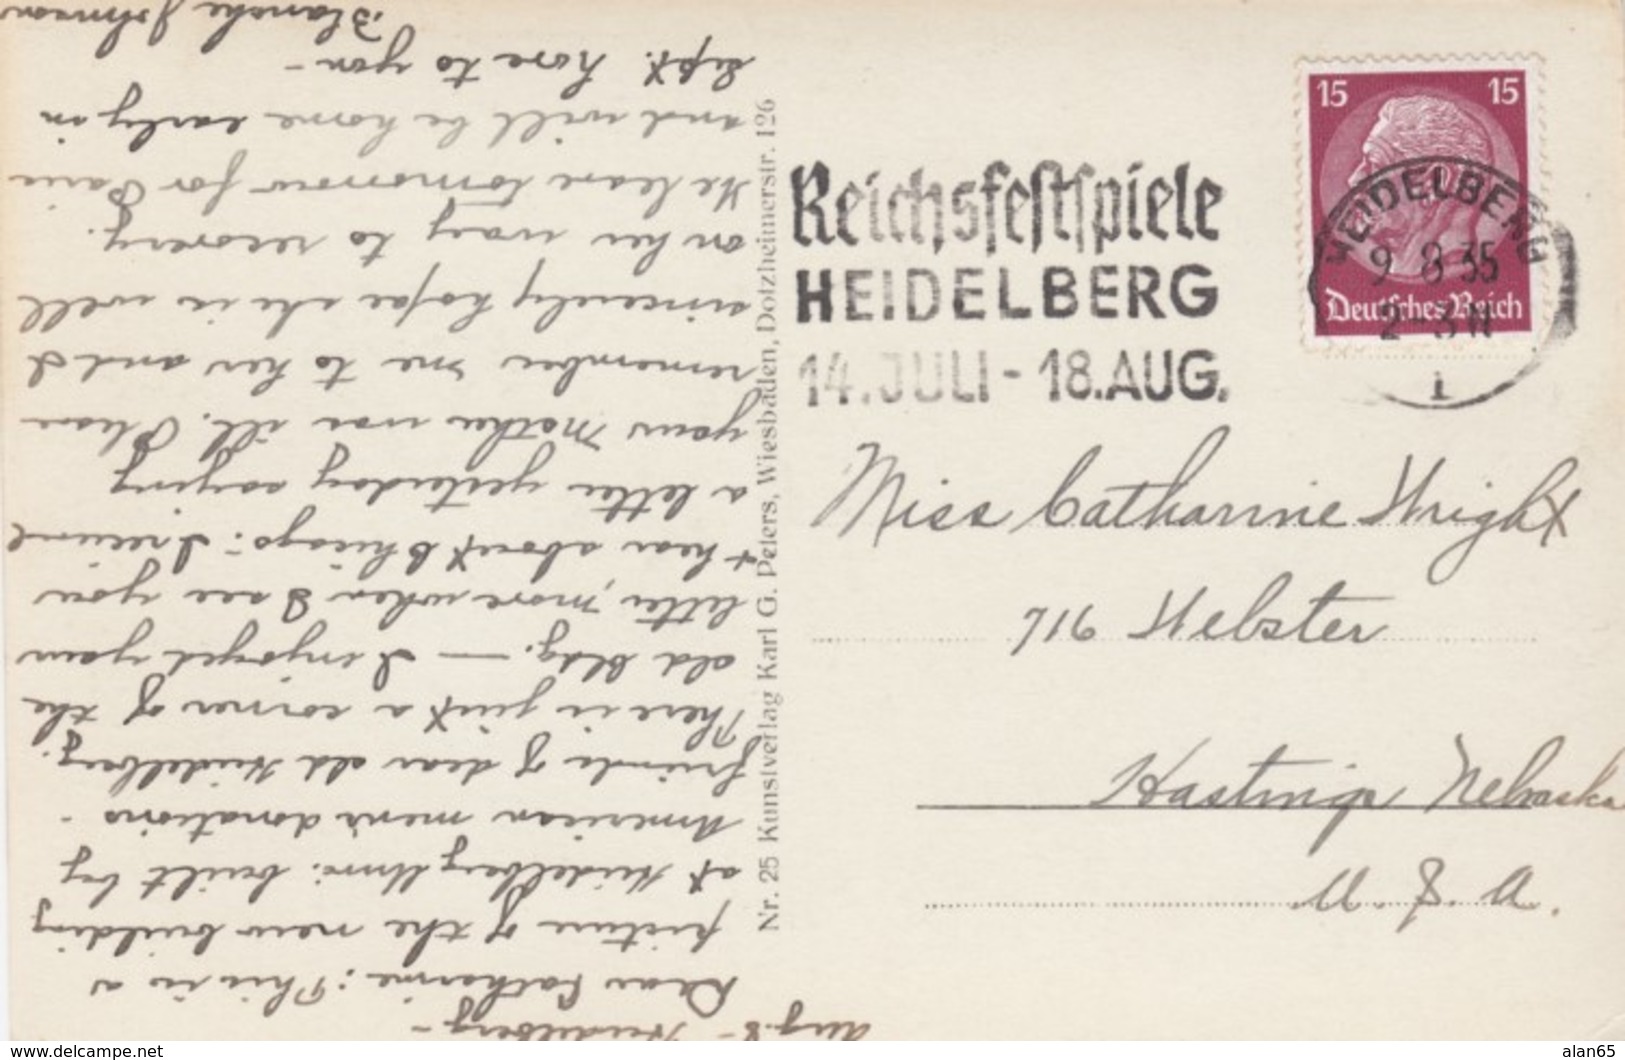 Aug. 8 - Heidelberg -
Dear Catharine: This is a
picture of the new building
at Heidelberg Univ. built by
American men's donations -
friends of dear old Heidelberg.
There is just a corner of the
old bldg. — I enjoyed your
letter, more when I see you
+ hear about Chicago - I received
a letter yesterday saying
your Mother was ill. Please
remember me to her and I
sincerely hope she is well
on her way to recovery.
We leave tomorrow for Paris
and will be home early in
Sept. Love to you -
Blanche Johnson
Nr. 25 Kunstverlag Karl G. Peters, Wiesbaden, Dotzheimerstr. 126
Reichsfestspiele
HEIDELBERG
14. JULI - 18. AUG.
15 15
Deutsches Reich
HEIDELBERG
9 8 35
1
Miss Catharine Wright
716 Webster
Hastings Nebraska
U. S. A.
www.delcampe.net
alan65